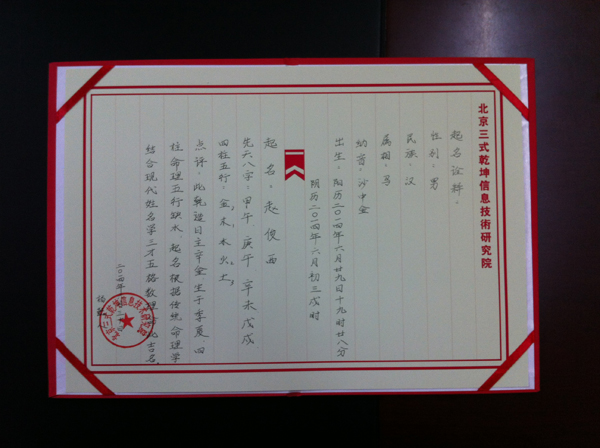 北京三式乾坤信息技術研究院
起名诠释：
性别：男
民族：汉
属相：马
纳音：沙中金
出生：阳历二〇一四年六月廿九日十九时廿八分
阴历二〇一四年六月初三戌时
起名：赵俊西
先天八字：甲午 庚午 辛未 戊戌
四柱五行：金 木 火 土
点评：此乾造日主辛金生于季夏四
柱命理五行缺水 起名根据传统命理学
结合现代姓名学三才五格数理吉名
北京三式乾坤信息技术研究院